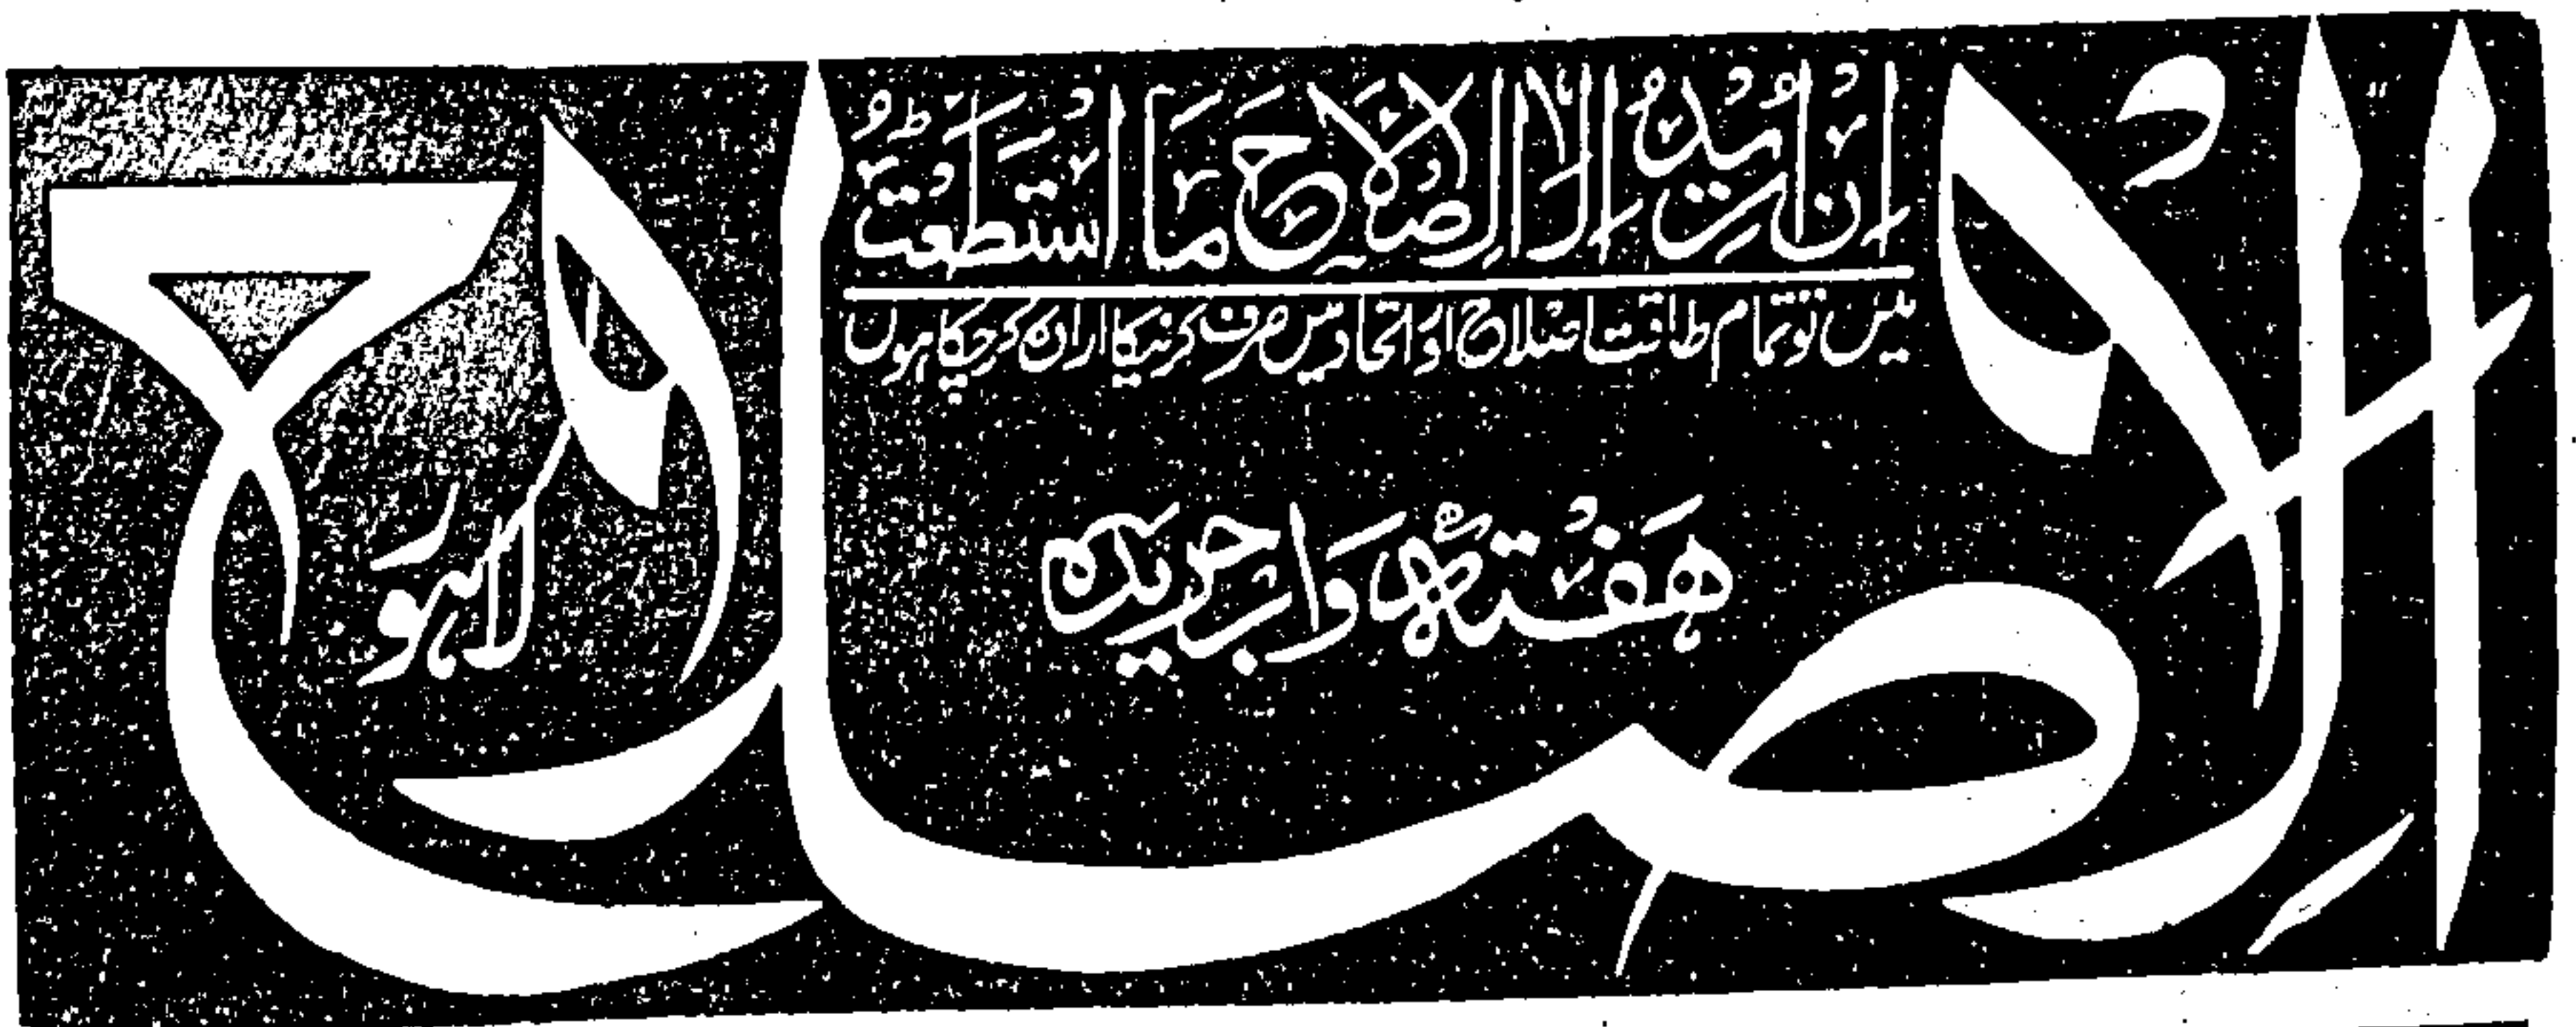 الاصلاح
اِنْ اُرِیْدُ اِلَّا الْاِصْلَاحَ مَا اسْتَطَعْتُ
میں تو تمام طاقت اصلاح اور اتحاد میں صرف کرنیکا ارادہ کر چکا ہوں
ہَفْتہ وَار جریدہ
لاہور